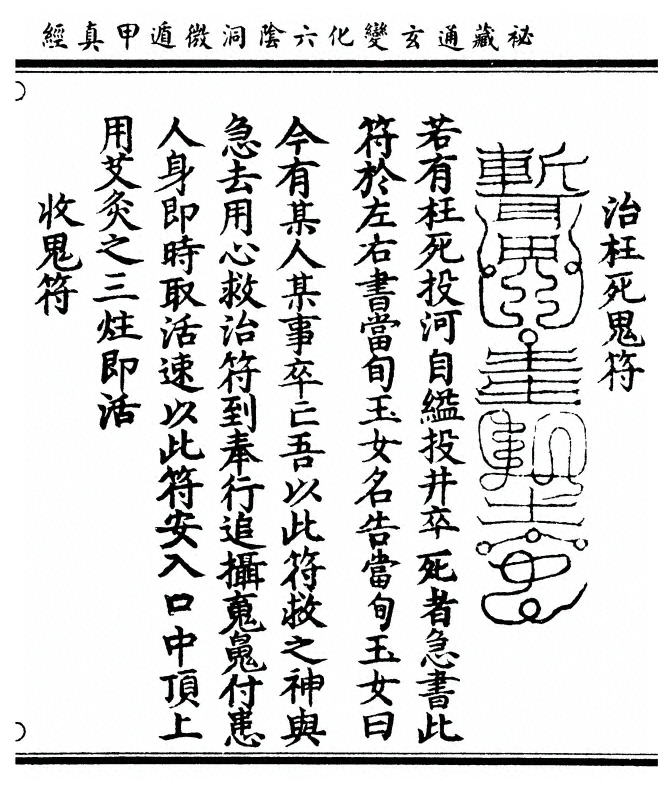 祕藏通玄變化六陰洞微遁甲真經
治枉死鬼符
若有枉死投河自縊投井卒死者急書此
符於左右書當旬玉女名告當旬玉女曰
今有某人某事卒亡吾以此符救之神與
急去用心救治符到奉行追攝䰟䰟付患
人身即時取活速以此符安入口中頂上
用艾灸之三炷即活
收鬼符